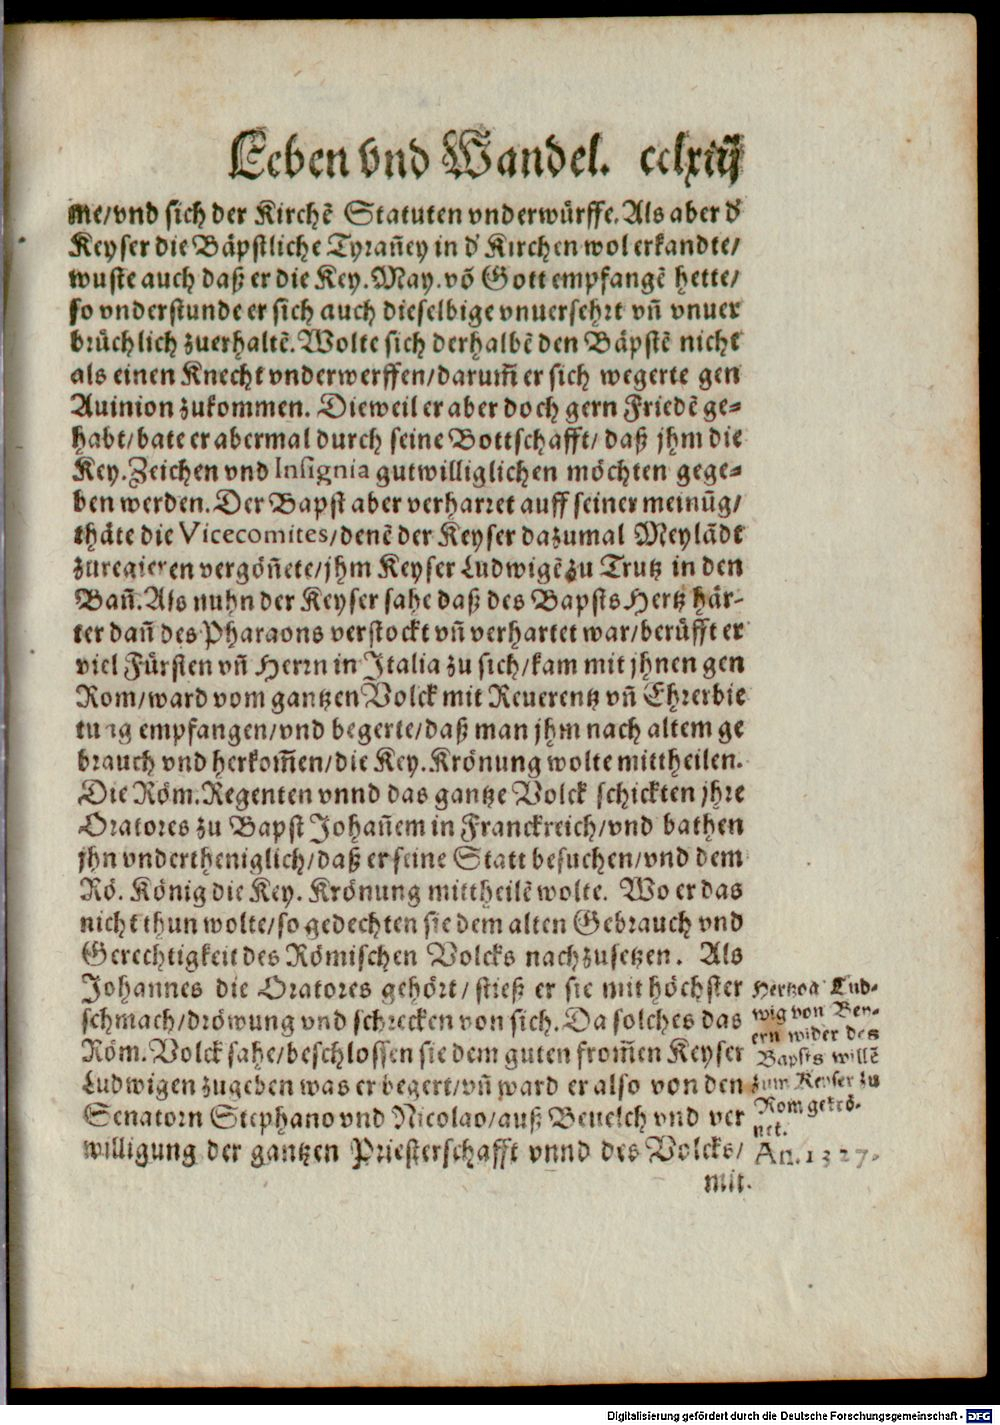 Leben vnd Wandel. cclxiij
me/vnd sich der Kirchẽ Statuten vnderwürffe. Als aber d'
Keyser die Bäpstliche Tyrañey in d' Kirchen wol erkandte/
wuste auch daß er die Key. May. võ Gott empfangẽ hette/
so vnderstunde er sich auch dieselbige vnuersehrt vñ vnuer
brüchlich zuerhaltẽ. Wolte sich derhalbẽ den Bäpstẽ nicht
als einen Knecht vnderwerffen/darum̃ er sich wegerte gen
Auinion zukommen. Dieweil er aber doch gern Friedẽ ge-
habt/bate er abermal durch seine Bottschafft/daß jhm die
Key. Zeichen vnd Insignia gutwilliglichen möchten gege-
ben werden. Der Bapst aber verharret auff seiner meinũg/
thäte die Vicecomites/denẽ der Keyser dazumal Meylãdt
zuregieren vergöñete/jhm Keyser Ludwigẽ zu Trutz in den
Bañ. Als nuhn der Keyser sahe daß des Bapsts Hertz här-
ter dañ des Pharaons verstockt vñ verhartet war/berüfft er
viel Fürsten vñ Herrn in Italia zu sich/kam mit jhnen gen
Rom/ward vom gantzen Volck mit Reuerentz vñ Ehrerbie
tung empfangen/vnd begerte/daß man jhm nach altem ge
brauch vnd herkom̃en/die Key. Krönung wolte mittheilen.
Die Röm. Regenten vnnd das gantze Volck schickten jhre
Oratores zu Bapst Johañem in Franckreich/vnd bathen
jhn vndertheniglich/daß er seine Statt besuchen/vnd dem
Rö. König die Key. Krönung mittheilẽ wolte. Wo er das
nicht thun wolte/so gedechten sie dem alten Gebrauch vnd
Gerechtigkeit des Römischen Volcks nachzusetzen. Als
Johannes die Oratores gehört/stieß er sie mit höchster
schmach/dröwung vnd schrecken von sich. Da solches das
Röm. Volck sahe/beschlossen sie dem guten from̃en Keyser
Ludwigen zugeben was er begert/vñ ward er also von den
Senatorn Stephano vnd Nicolao/auß Beuelch vnd ver
willigung der gantzen Priesterschafft vnnd des Volcks/
mit
Hertzog Lud-
wig von Bey-
ern wider des
Bapsts willẽ
zum Keyser zu
Rom gekrö-
net.
An. 1327.
Digitalisierung gefördert durch die Deutsche Forschungsgemeinschaft - DFG